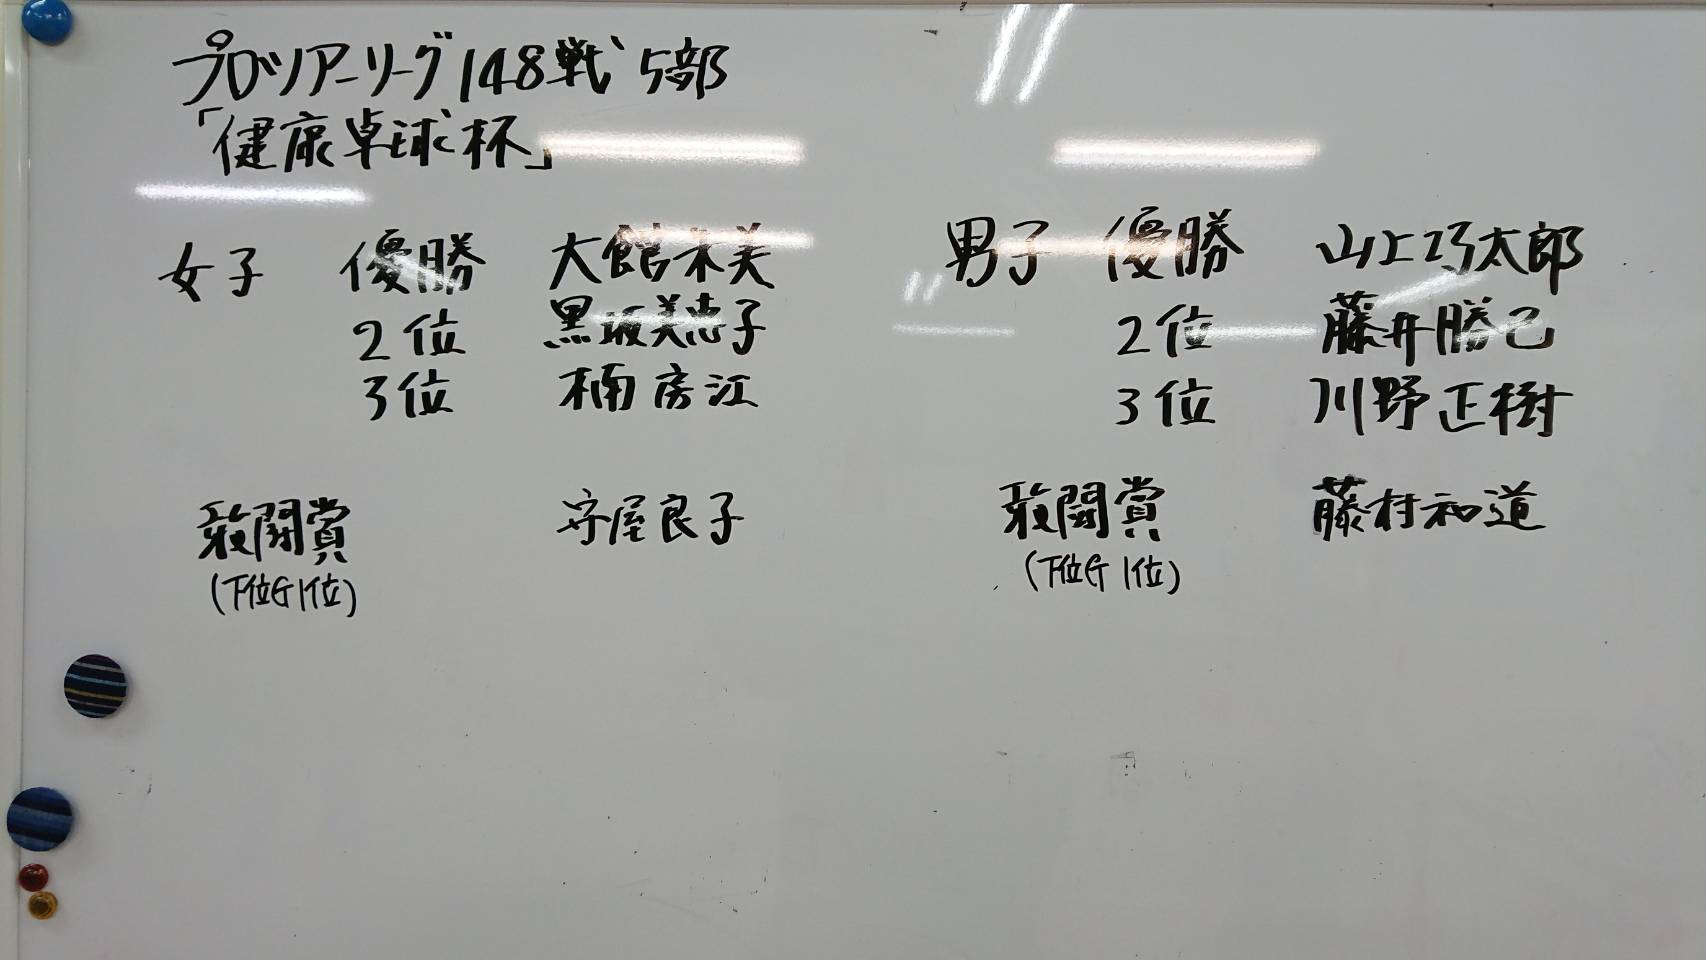 プロツアーリーグ148戦 5部
「健康卓球杯」
女子 優勝 大館朱美
2位 黒坂美恵子
3位 楠房江
敢闘賞 守屋良子
(下位G1位)
男子 優勝 山上巧太郎
2位 藤井勝己
3位 川野正樹
敢闘賞 藤村和道
(下位G1位)